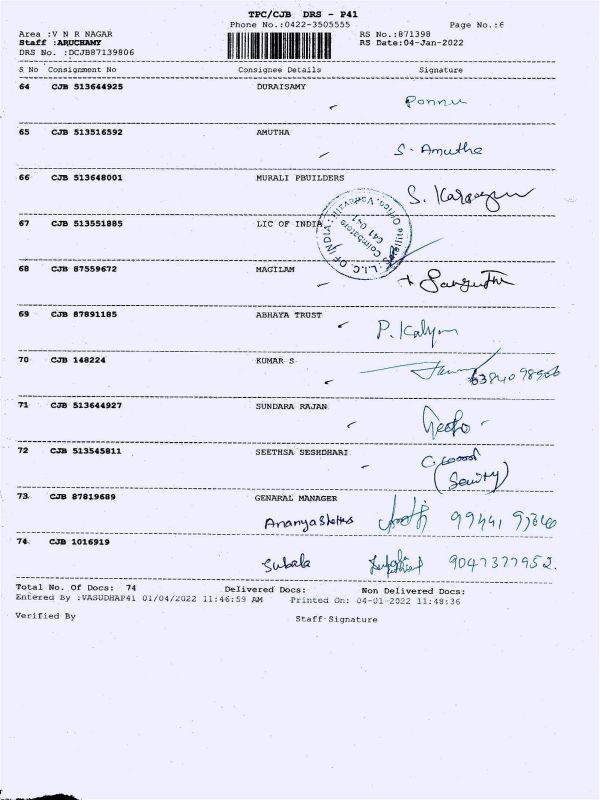 TPC/CJB DRS - P41
Phone No.:0422-3505555 Page No.:6
Area :V N R NAGAR RS No.:871398
Staff :ARUCHAMY RS Date:04-Jan-2022
DRS No. :DCJB87139806
S No Consignment No Consignee Details Signature
64 CJB 513644925 DURAISAMY Ponnu
65 CJB 513516592 AMUTHA S. Amutha
66 CJB 513648001 MURALI PBUILDERS
67 CJB 513551885 LIC OF INDIA
L.I.C. OF INDIA Satellite Office, Coimbatore 641 041
68 CJB 87559672 MAGILAM
69 CJB 87891185 ABHAYA TRUST P. Kalyan
70 CJB 148224 KUMAR S
71 CJB 513644927 SUNDARA RAJAN
72 CJB 513545811 SEETHSA SESHDHARI
73 CJB 87819689 GENARAL MANAGER
74 CJB 1016919
Subala 9047377952.
Total No. Of Docs: 74 Delivered Docs: Non Delivered Docs:
Entered By :VASUDHAP41 01/04/2022 11:46:59 AM Printed On: 04-01-2022 11:48:36
Verified By Staff Signature